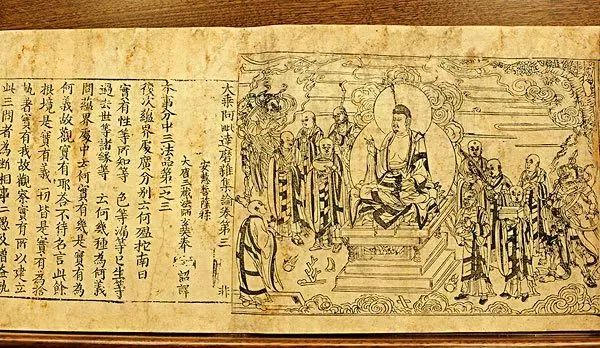 大乘阿毗達磨雜集論卷第三 非
安慧菩薩糅
大唐三藏法師玄奘奉 詔譯
本事分中三法品第一之三
復次蘊界處廣分別云何嗢拕南曰
實有性等所知等 色等漏等已生等
過去世等諸緣等 云何幾種為何義
問蘊界處中云何實有幾是實有為
何義故觀實有耶答不待名言此餘
根境是實有義一切皆是實有為捨
執著實有我故觀察實有所以建立
此三問者為斷相事二愚及增益執